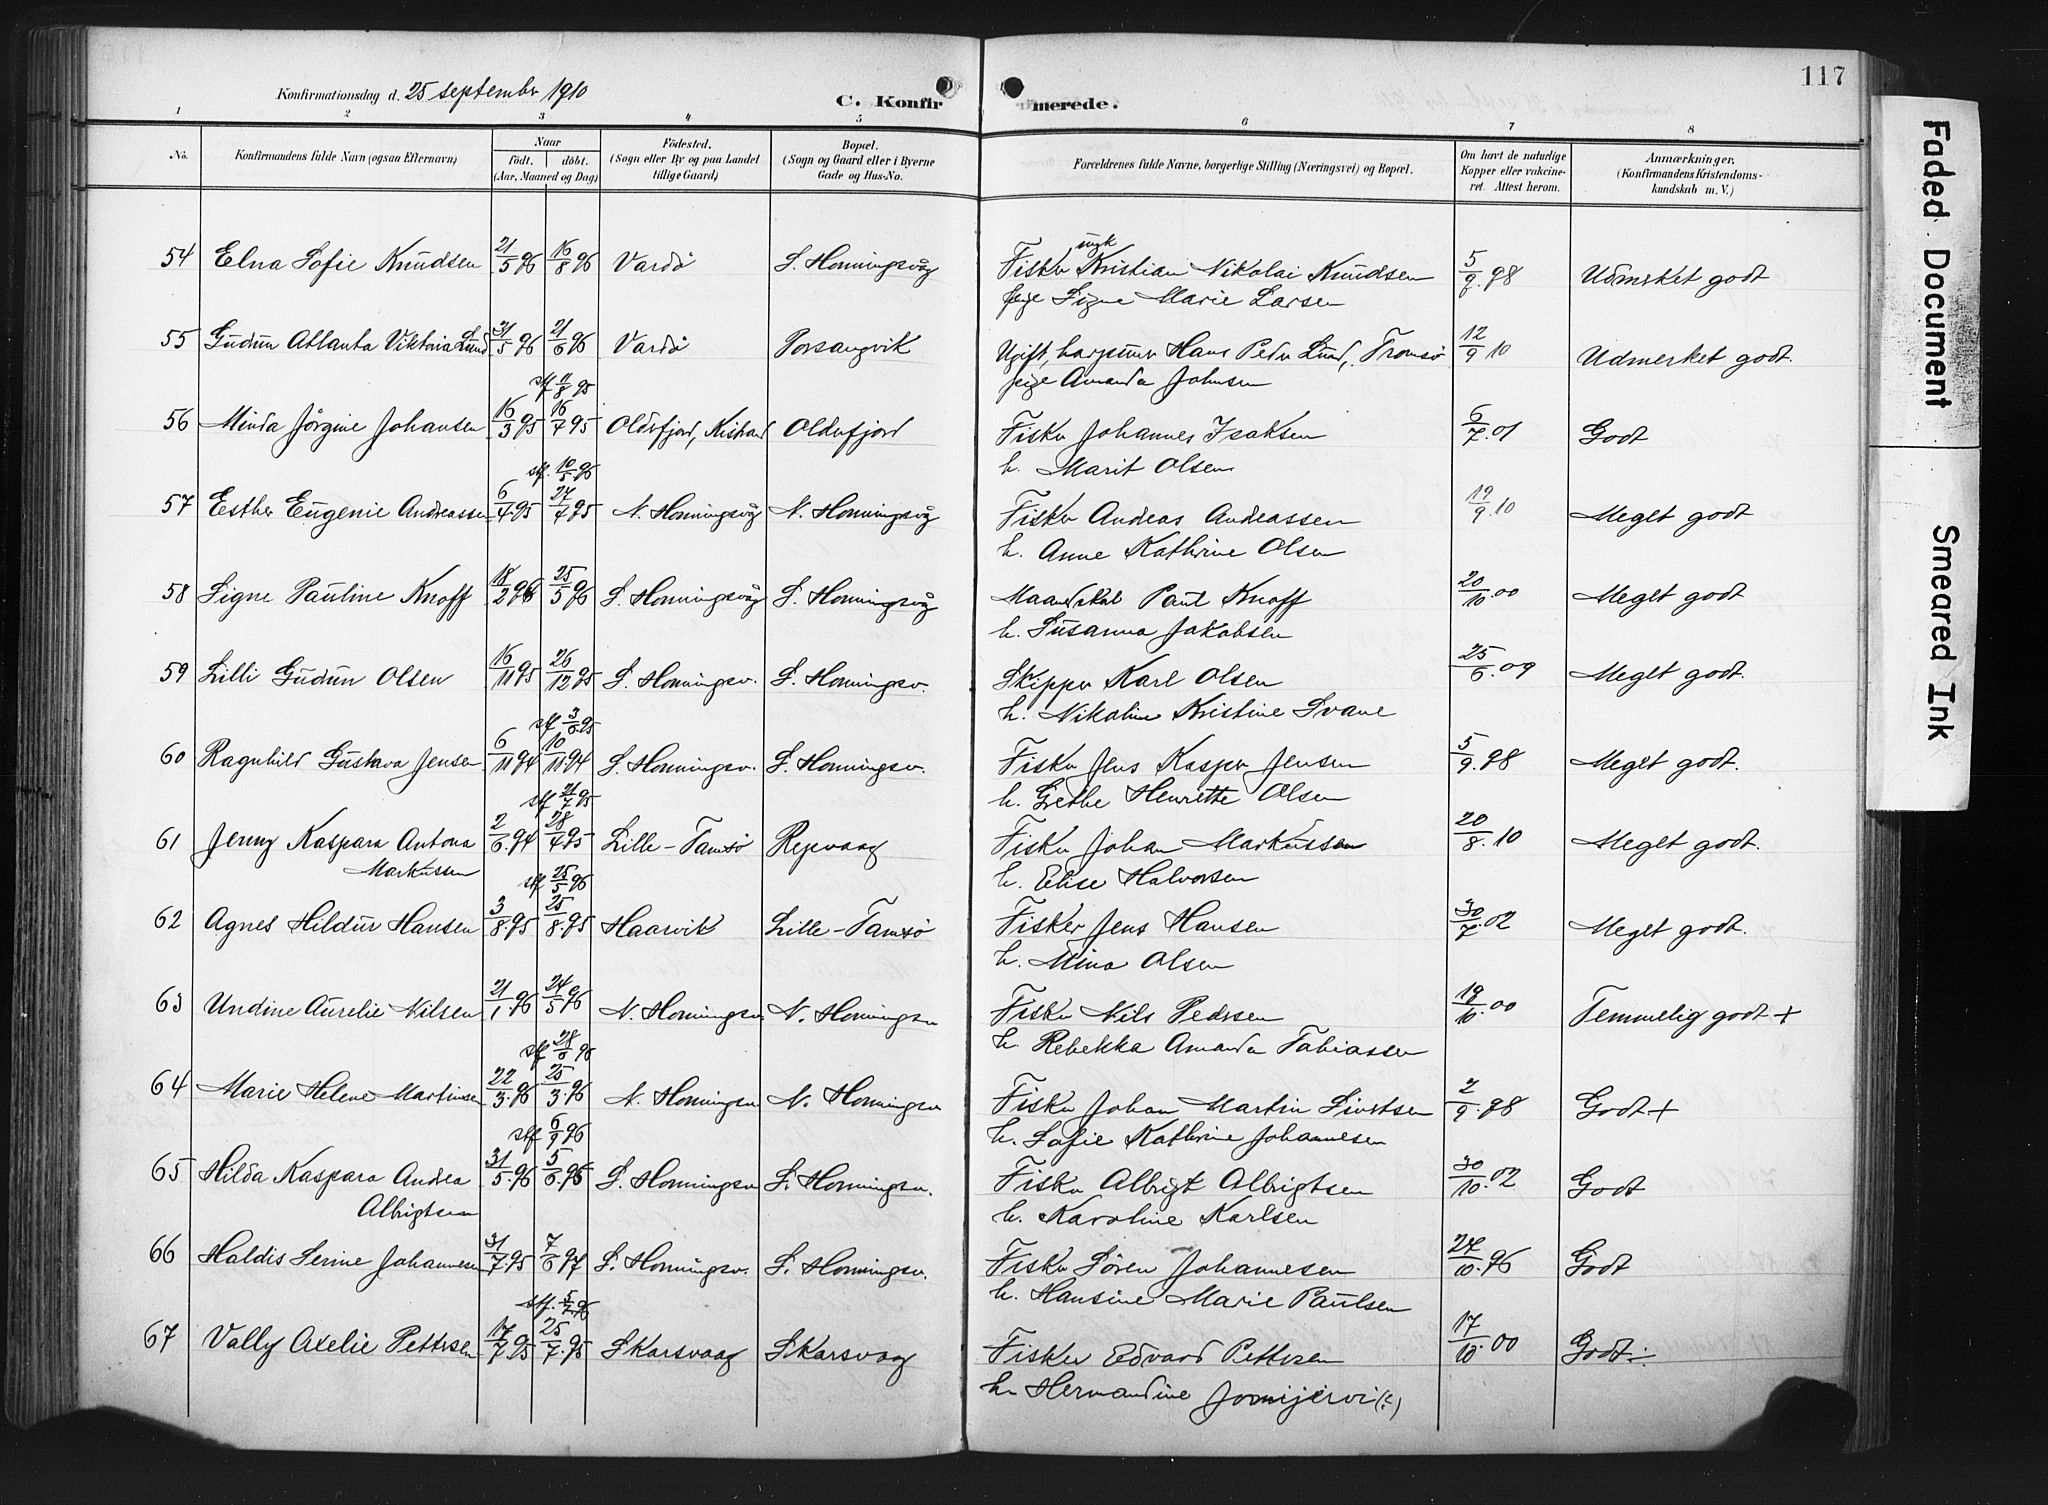 117
Konfirmationsdag d. 25 september 1910
C. Konfirmerede.
1 2 3 4 5 6 7 8
No. Konfirmandens fulde Navn (ogsaa Efternavn) Naar födt. döbt. (Aar, Maaned og Dag) Födested. (Sogn eller By og paa Landet tillige Gaard) Bopæl. (Sogn og Gaard eller i Byerne Gade og Hus-No. Forældrenes fulde Navne, borgerlige Stilling (Næringsvei) og Bopæl. Om havt de naturlige Kopper eller vakcineret. Attest herom. Anmærkninger, (Konfirmandens Kristendomskundskab m. V.)
54 Elna Sofie Knudsen 21/5 96 16/8 96 Vardö S. Honningsvåg Fisker ungk Kristian Nikolai Knudsen 5/9.98 Udmerket godt
pige Signe Marie Larsen
55 Gudrun Atlanta Viktoria Lund 31/5 96 21/6 96 Vardö Porsangvik Ugift, Hans Peder Lund, Tromsö 12/9 10 Udmerket godt.
pige Amanda Johnsen
stf 11/8 95
56 Minda Jörgine Johansen 16/3 95 16/7 95 Olderfjord, Kistrand Olderfjord Fisker Johannes Isaksen 6/7.01 Godt
h. Marit Olsen
stf. 10/5 96
57 Esther Eugenie Andreassen 6/4 95 27/4 95 N. Honningsvåg N. Honningsvåg Fisker Andreas Andreassen 19/9.10 Meget godt
h. Anne Kathrine Olsen
58 Signe Pauline Knoff 18/2 96 25/5 96 S. Honningsvåg S. Honningsvåg Paul Knoff 20/10.00 Meget godt
h. Susanna Jakobsen
59 Lilli Gudrun Olsen 16/11 95 26/12 95 S. Honningsv. S. Honningsv. Skipper Karl Olsen 25/6.09 Meget godt.
h. Nikoline Kristine Svane
stf 3/6 95
60 Ragnhild Gustava Jensen 6/11 94 10/11 94 S. Honningsv. S. Honningsv. Fisker Jens Kasper Jensen 5/9.98 Meget godt.
h. Grethe Henrette Olsen
stf 21/7 95
61 Jenny Kaspara Antona 2/6 94 28/4 95 Lille-Tamsö Repvaag Fisker Johan Markussen 20/8.10 Meget godt.
Markussen h. Elise Halvorsen
stf 25/5 96
62 Agnes Hildur Hansen 3/8.95 25/8.95 Haarvik Lille-Tamsö Fisker Jens Hansen 30/7.02 Meget godt.
h. Mina Olsen
63 Undine Aurelie Nilsen 21/1 96 24/5 96 N. Honningsv. N. Honningsv Fisker Nils Pedersen 19/10.00 Temmelig godt +
h Rebekka Amanda Tobiassen
stf 28/6 96
64 Marie Helene Martinsen 22/3.96 25/3.96 N. Honningsv. N. Honningsv Fisker Johan Martin Sivertsen 2/9.98 Godt +
h. Sofie Kathrine Johannesen
stf 6/9 96
65 Hilda Kaspara Andrea 31/5.96 5/6.96 S. Honningsv S. Honningsv. Fisker Albrigt Albrigtsen 30/10.02 Godt
Albrigtsen h. Karoline Karlsen
66 Haldis Serine Johannesen 31/7.95 7/6 97 S. Honningsv. S. Honningsv. Fisker Sören Johannesen 27/10.96 Godt
h. Hansine Marie Paulsen
stf. 5/7.96
67 Vally Axelie Pettersen 17/7 95 25/7.95 Skarsvaag Skarsvaag Fisker Edvard Pettersen 17/10.00 Godt ÷
h Hermandine Jomijervi (?)
Faded Document
Smeared Ink